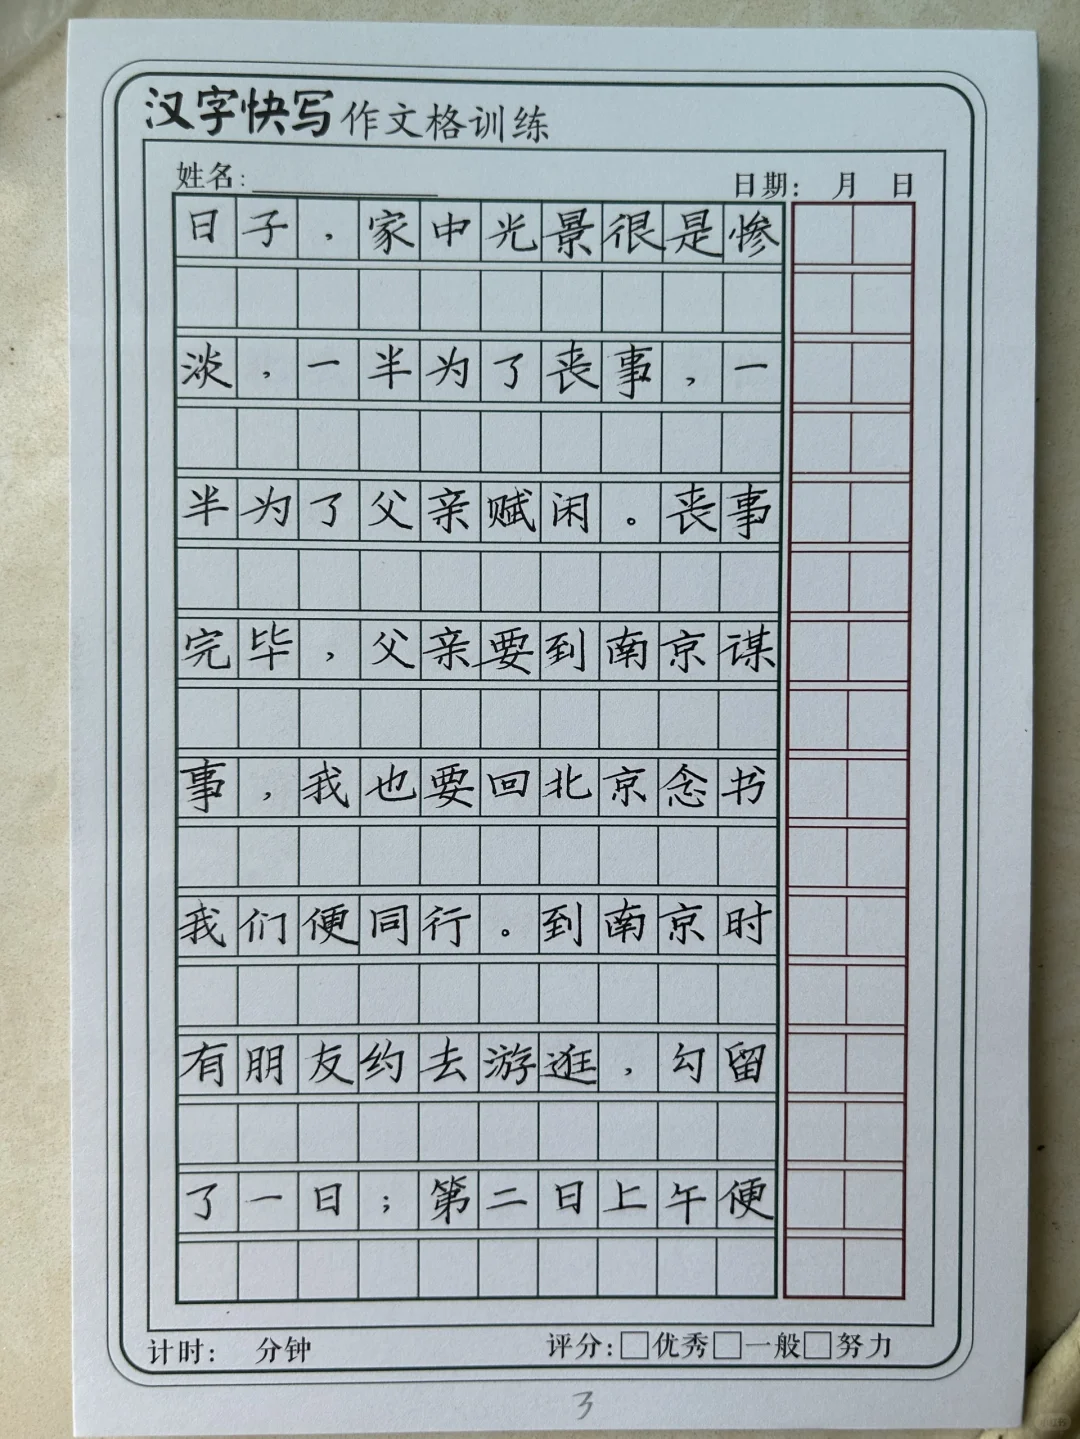 汉字快写作文格训练
姓名: 日期: 月 日
日子，家中光景很是惨
淡，一半为了丧事，一
半为了父亲赋闲。丧事
完毕，父亲要到南京谋
事，我也要回北京念书
我们便同行。到南京时
有朋友约去游逛，勾留
了一日；第二日上午便
计时: 分钟 评分:□优秀□一般□努力
3